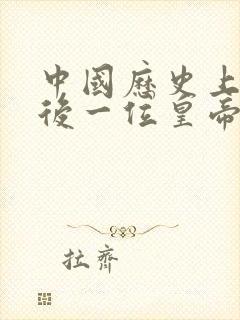 中國歷史上
後一位皇帝
拉齊